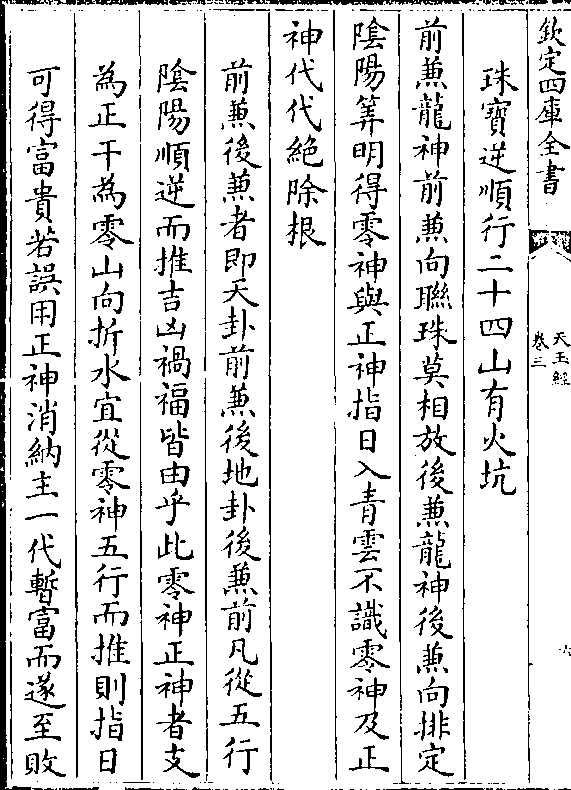 欽定四庫全書
天玉經
卷三
六
珠寶逆順行二十四山有火坑
前兼龍神前兼向聯珠莫相放後兼龍神後兼向排定
陰陽筭明得零神與正神指日入青雲不識零神及正
神代代絶除根
前兼後兼者即天卦前兼後地卦後兼前凡從五行
陰陽順逆而推吉凶禍福皆由乎此零神正神者支
為正干為零山向折水宜從零神五行而推則指日
可得富貴若誤用正神消納主一代暫富而遂至敗